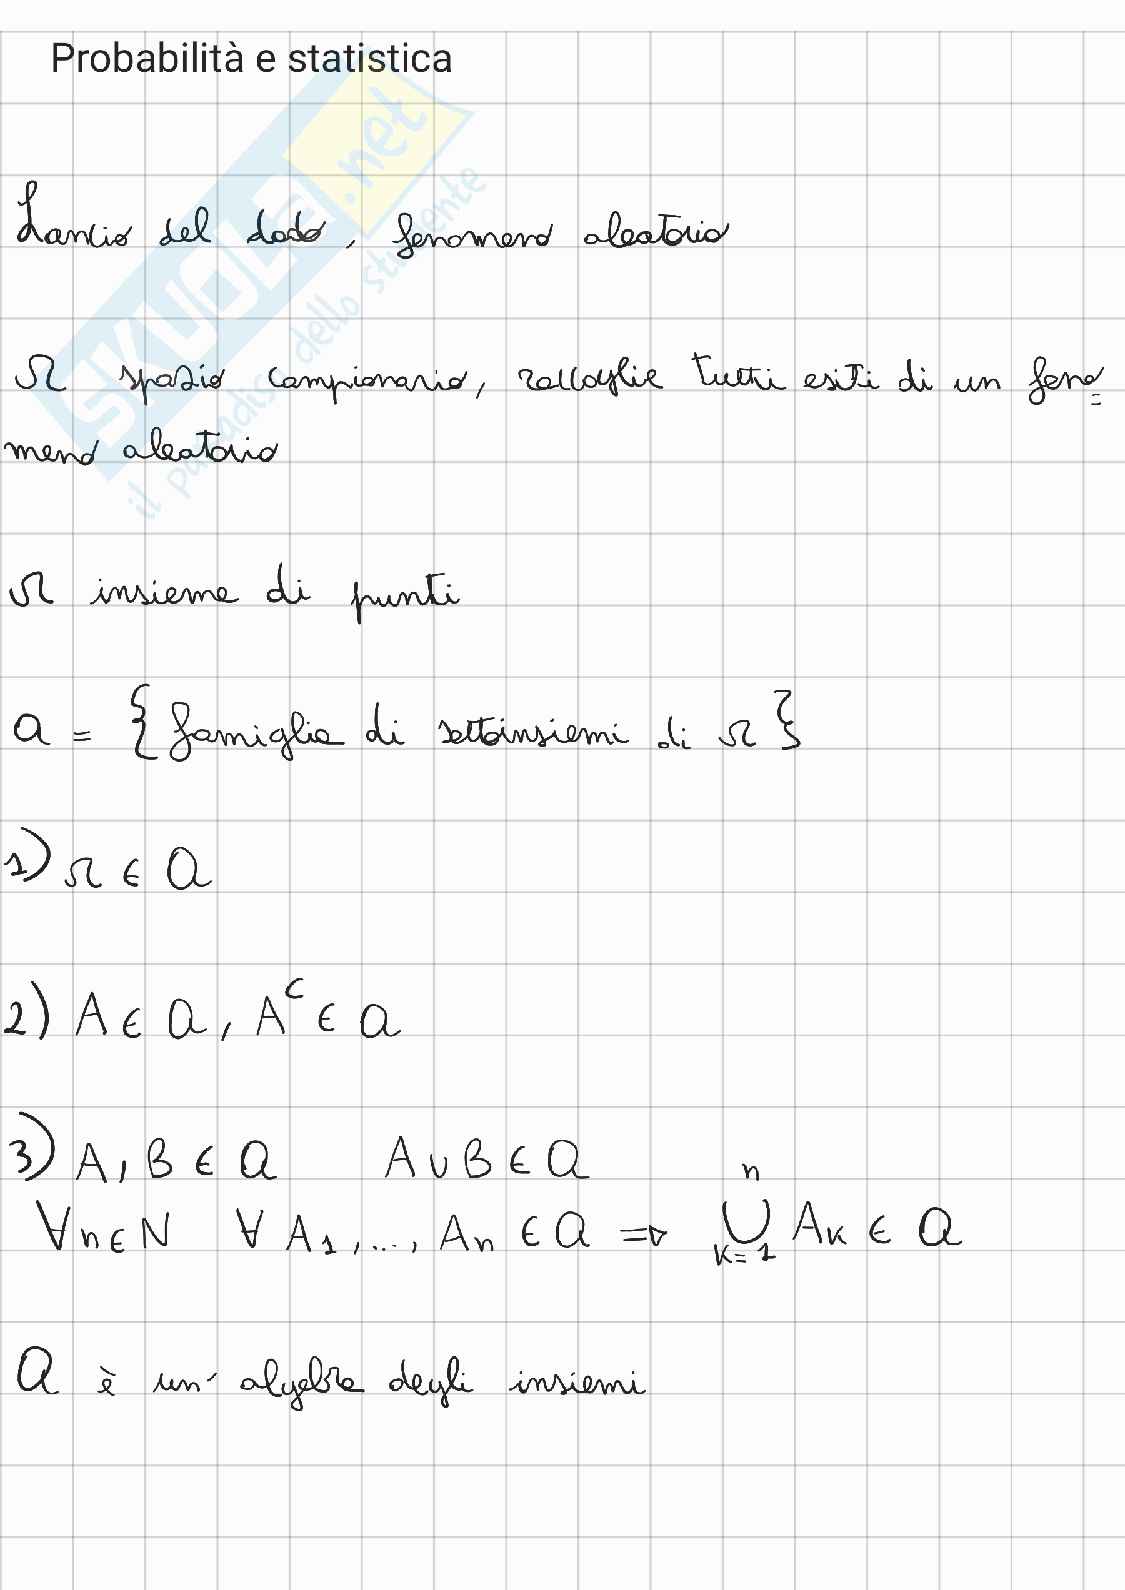 Probabilità e statistica
SKUOLA.net
il paradiso dello studente
Lancio del dado, fenomeno aleatorio
Ω spazio campionario, raccoglie tutti esiti di un feno=
meno aleatorio
Ω insieme di punti
a = {famiglia di sottoinsiemi di Ω}
1) Ω ∈ a
2) A ∈ a, Aᶜ ∈ a
3) A, B ∈ a A ∪ B ∈ a
∀n∈N ∀ A₁, ..., Aₙ ∈ a ⇒ ⋃ₖ₌₁ⁿ Aₖ ∈ a
a è un' algebra degli insiemi